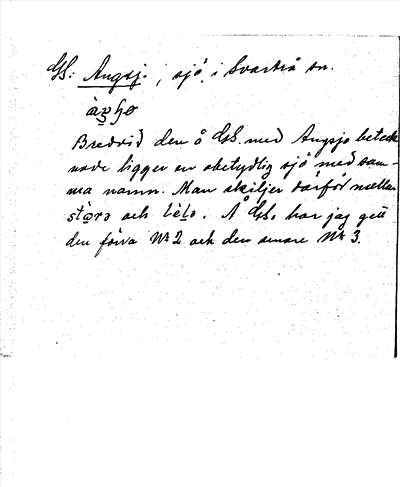 GS: Angsj. , sjö, i Svartrå sn.
Bredvid den å GS. med Angsjo beteck
nade ligger en obetydlig sjö med sam-
ma namn. Man skiljer därför mellan
och . Å GS. har jag gett
den förra Nr 2 och den senare Nr 3.